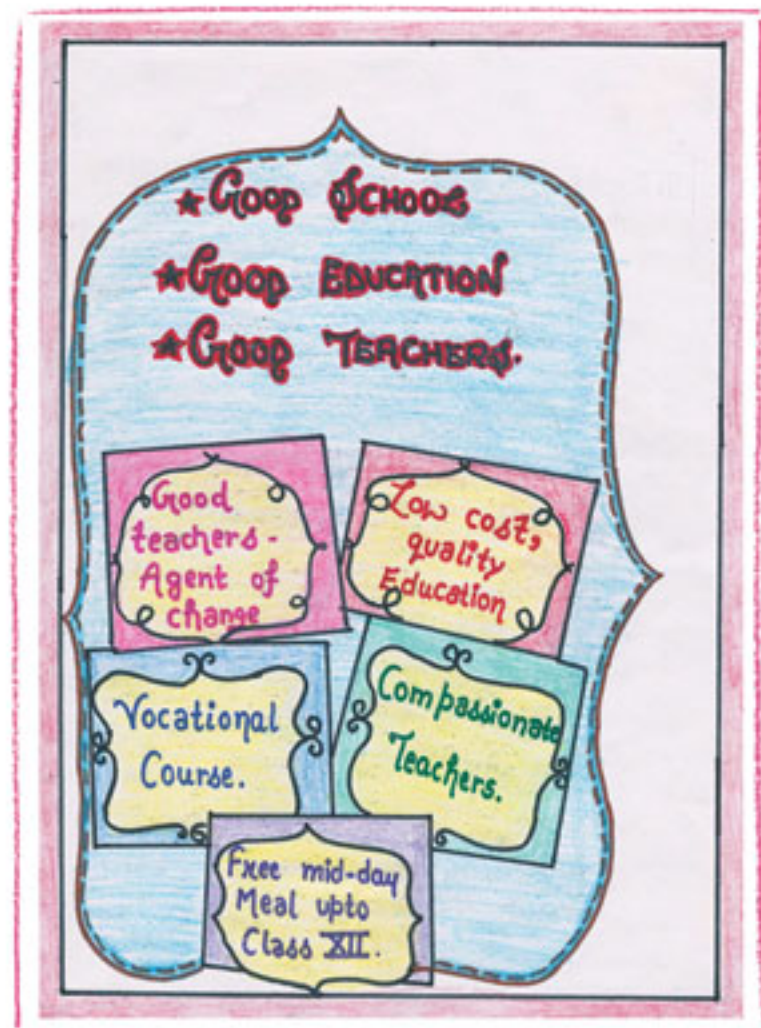 ★ GOOD SCHOOL
★ GOOD EDUCATION
★ GOOD TEACHERS.
Good
teachers-
Agent of
change
Low cost,
quality
Education
Vocational
Course.
Compassionate
Teachers.
Free mid-day
Meal upto
Class XII.